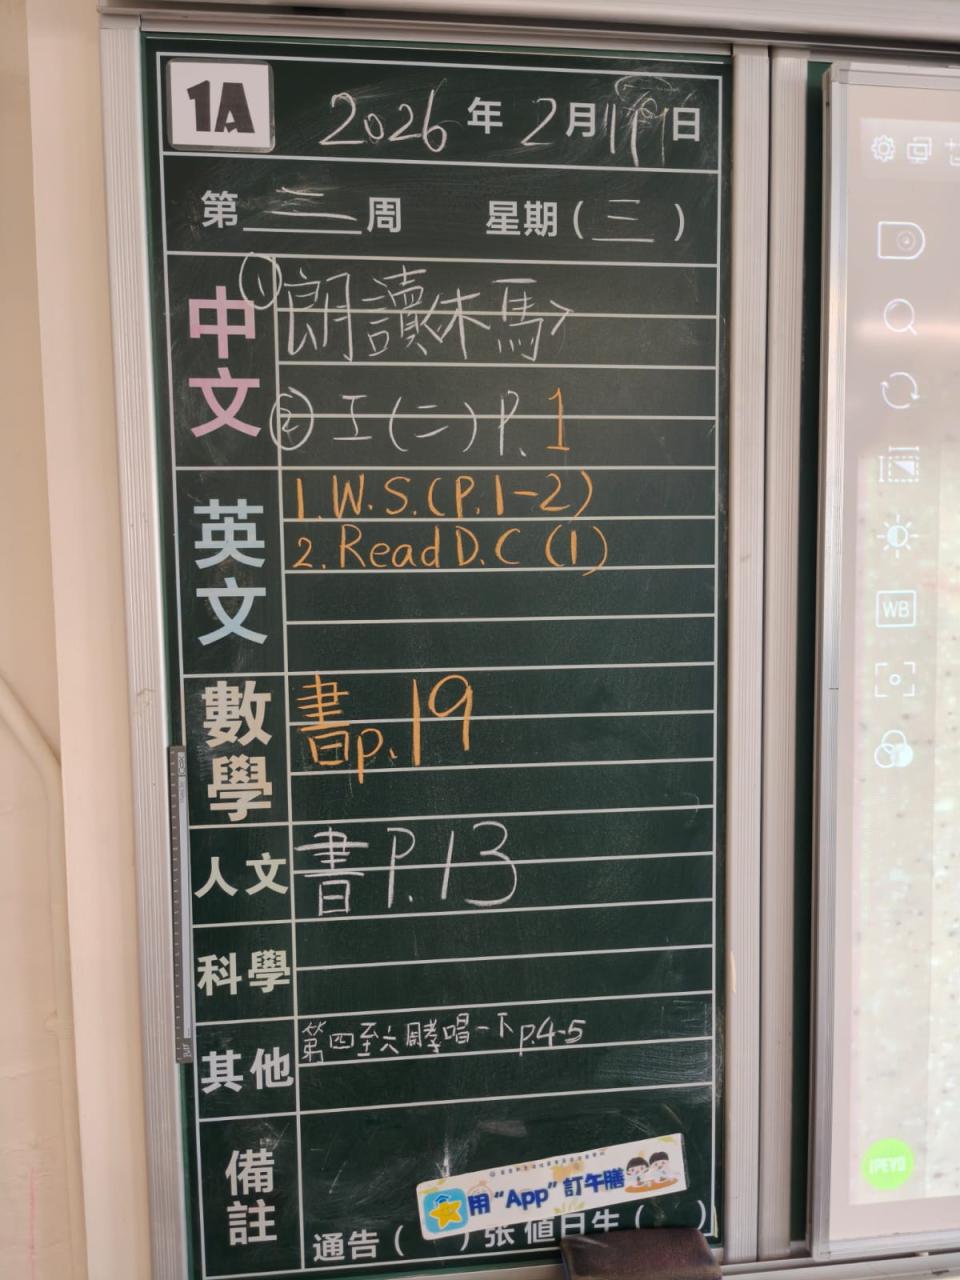 1A 2026年2月 日
第二周 星期(三)
中文
①朗讀〈木馬〉
②工(二)P.1
英文
1.W.S.(P.1-2)
2.Read D.C (1)
數學
書p.19
人文
書P.13
科學
其他
第四至六周 唱一下p.4-5
備註
用“App”訂午膳
通告( )張 值日生( )
WB
IPEVO